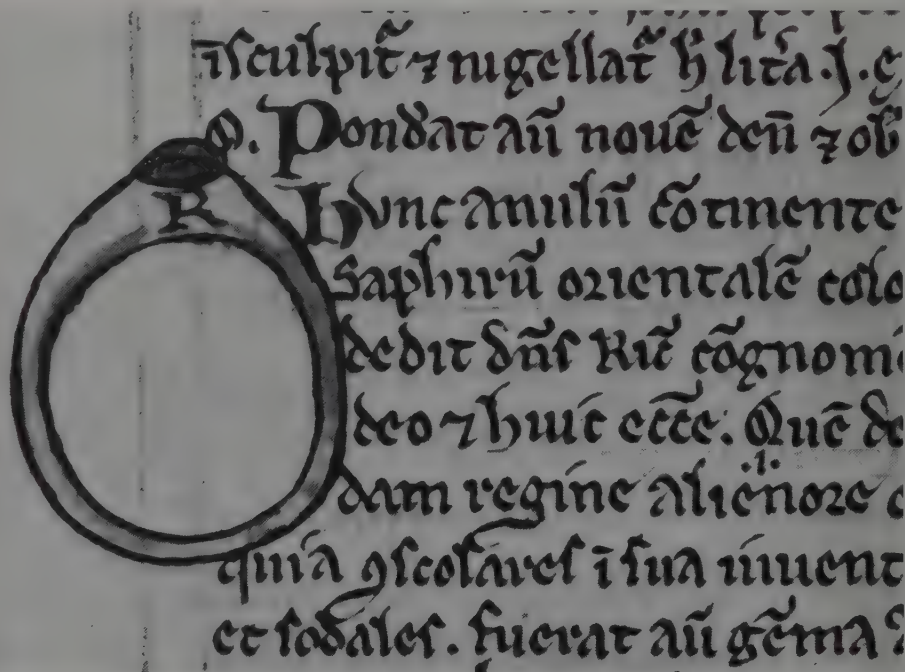 īsculpit᷑ ⁊ nigellat᷑ h̄ lit᷑a .J. e
Q. Pondat aū nouē deñ ⁊ ob̄
R Hvnc anulū cōtinente
Saphirū orientalē colo
dedit dn̄s Ric̄ cōgnomi
deo ⁊ huic eccē. Quē de
dam regine alienore
quia ꝯscolares ī sua iuuent
et sodales. fuerat aū gēma